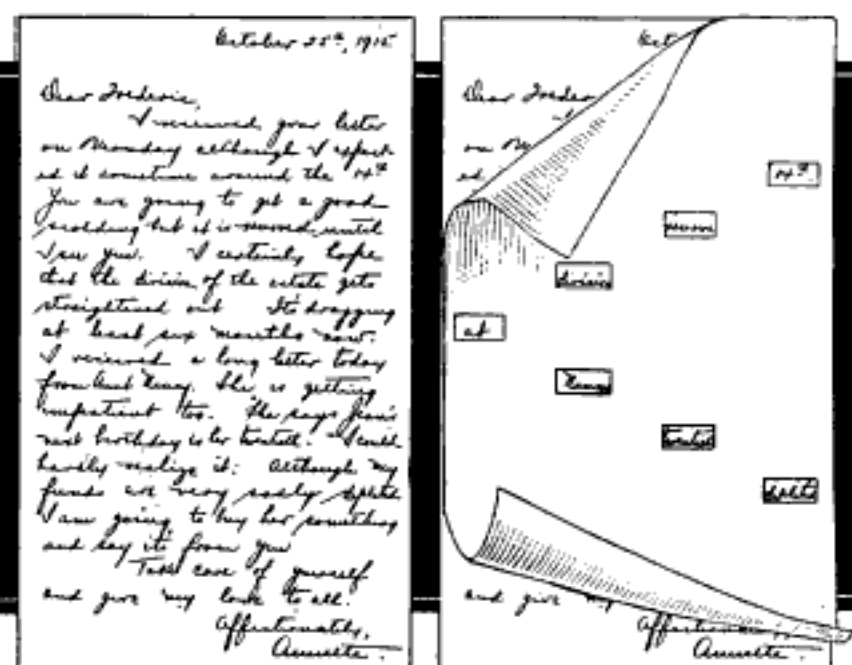 October 25th, 1915
Dear Frederic,
I received your letter
on Monday although I expect-
ed it sometime around the 14th
You are going to get a good
scolding but it is until
I see you. I certainly hope
that the division of the estate gets
straightened out It's dragging
at least six months now.
I received a long letter today
from Aunt Nancy. She is getting
impatient too. She says Jean's
next birthday is her twentieth. I could
hardly realize it. Although my
funds are very sadly deplete
I am going to buy her something
and say it's from you
Take care of yourself
and give my love to all.
Affectionately,
Annette.
Oct
Dear Freder
I
on M
ed
14th
division
at
Nancy
twentieth
deplete
and give my
Affection
Annette.